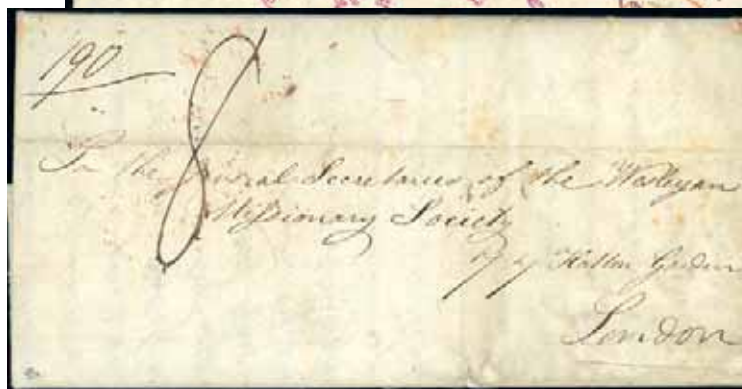 190
8
To the General Secretaries of the Wesleyan
Missionary Society
77 Hatton Garden
London